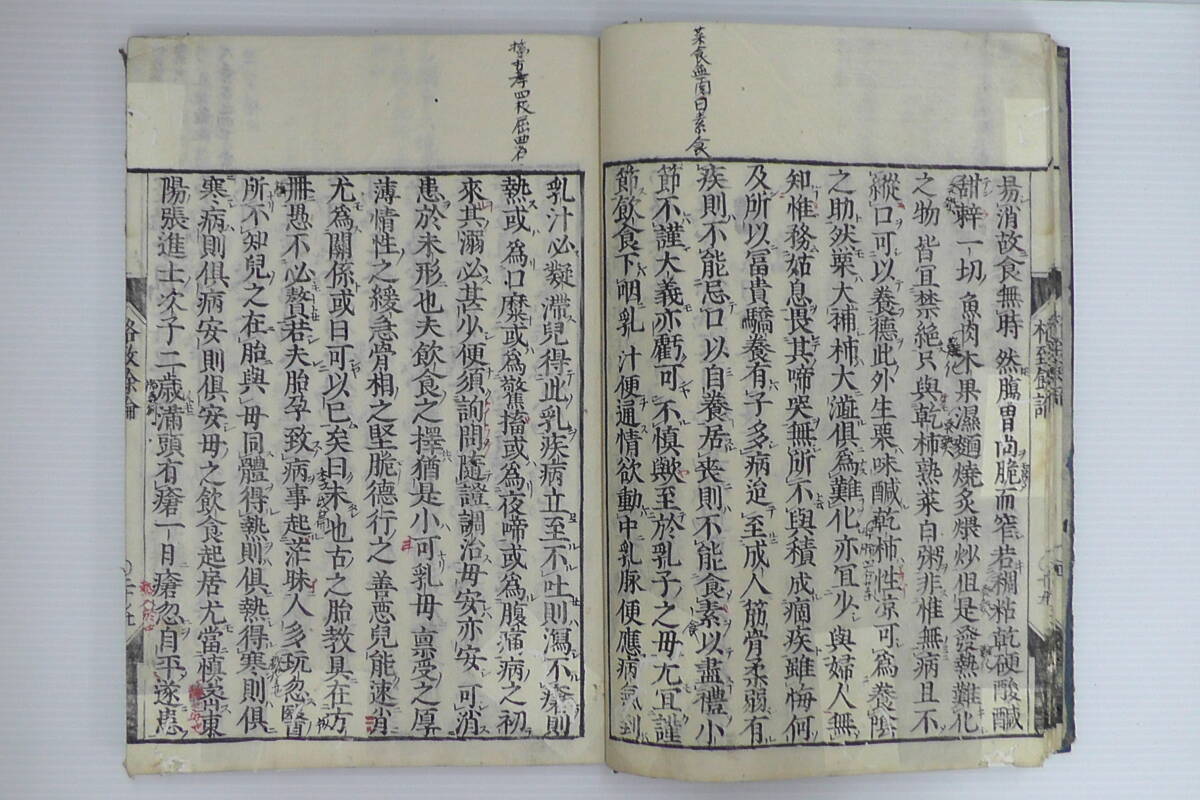 菜食無肉曰素食
易消故食無時然腸胃尚脆而窄若稠粘乾硬酸鹹
甜辣一切魚肉木果濕麵燒炙煨炒但是發熱難化
之物皆宜禁絶只與乾柿熟菜白粥非惟無病且不
縱口可以養德此外生栗味鹹乾柿性涼可爲養陰
之助然栗大補柿大澁俱爲難化亦宜少與婦人無
知惟務姑息畏其啼哭無所不與積成痼疾雖悔何
及所以冨貴驕養有子多病迨至成人筋骨柔弱有
疾則不能忌口以自養居喪則不能食素以盡禮小
節不謹大義亦虧可不慎歟至於乳子之母尤宜謹
節飲食下咽乳汁便通情欲動中乳脉便應病氣到
乳汁必凝滯兒得此乳疾病立至不吐則瀉不瘡則
熱或爲口糜或爲驚搐或爲夜啼或爲腹痛病之初
來其溺必甚少便須詢問隨證調治母安亦安可消
患於未形也夫飲食之擇猶是小可乳母稟受之厚
薄情性之緩急骨相之堅脆德行之善惡兒能速肖
尤爲關係或曰可以已矣曰未也古之胎教具在方
冊愚不必贅若夫胎孕致病事起茫昧人多玩忽醫
所不知兒之在胎與母同體得熱則俱熱得寒則俱
寒病則俱病安則俱安母之飲食起居尤當慎密東
陽張進士次子二歲滿頭有瘡一月瘡忽自平遂患
格致餘論